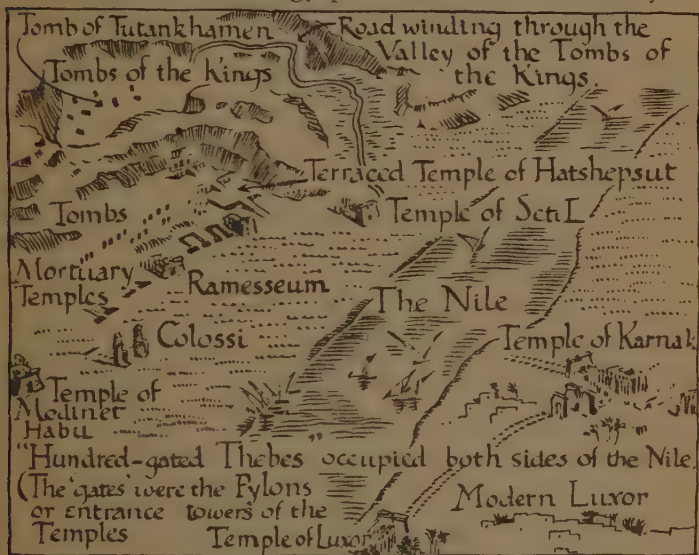 Tomb of Tutankhamen
Road winding through the
Valley of the Tombs of
the Kings.
Tombs of the Kings
Terraced Temple of Hatshepsut
Tombs
Temple of Seti I.
Mortuary
Temples
Ramesseum
The Nile
Colossi
Temple of Karnak
Temple of
Medinet
Habu
"Hundred-gated Thebes" occupied both sides of the Nile
(The 'gates' were the Pylons
or entrance towers of the
Temples
Modern Luxor
Temple of Luxor